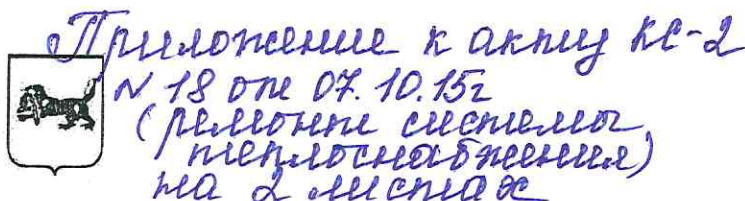 Приложение к акту КС-2
N 18 от 07.10.15г
(ремонт системы
теплоснабжения)
на 2 листах